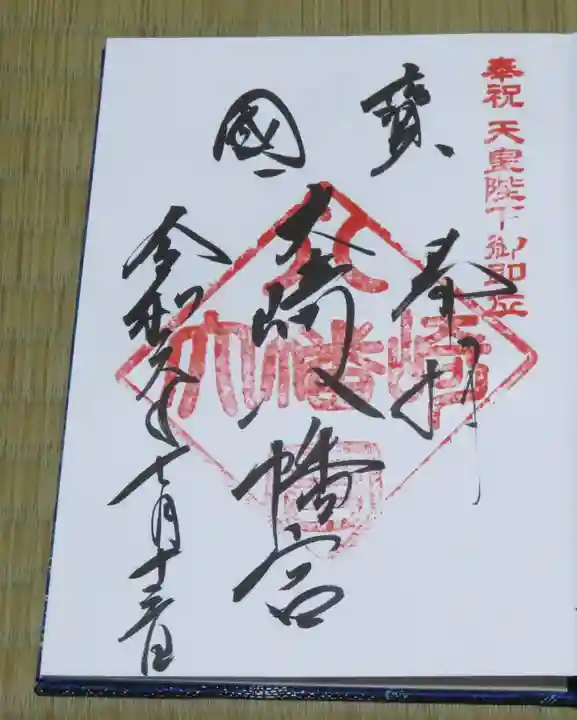 奉祝 天皇陛下御即位
國寶
奉拝
大崎八幡宮
令和元年七月十三日
大崎八幡宮